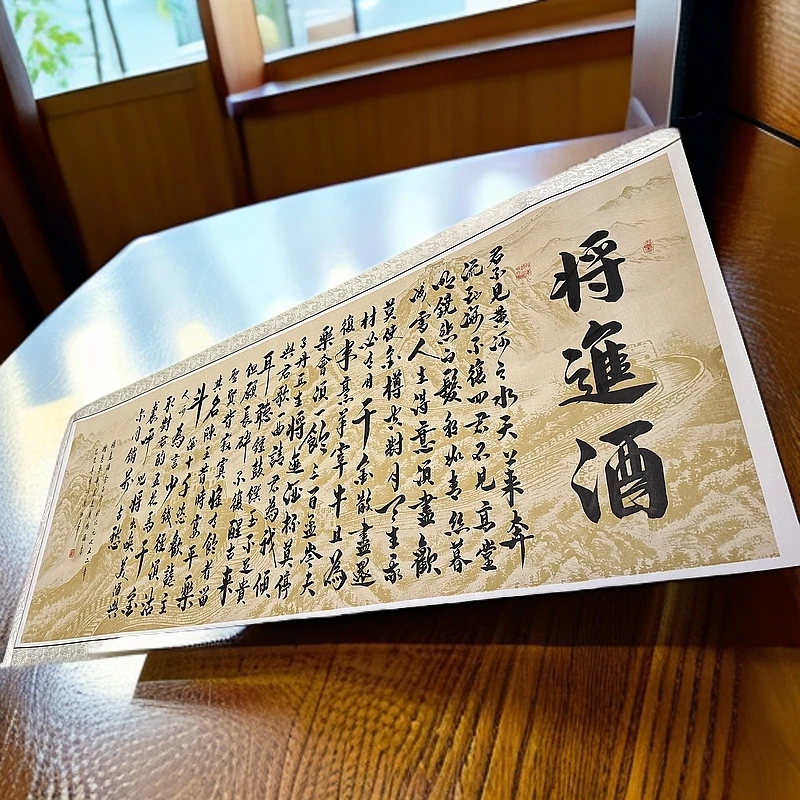 将進酒
君不見黄河之水天上來奔
流到海不復回君不見高堂
明鏡悲白髮朝如青絲暮
成雪人生得意須盡歡
莫使金樽空對月天生我
材必有用千金散盡還
復來烹羊宰牛且為
樂會須一飲三百盃岑夫
子丹丘生將進酒杯莫停
與君歌一曲請君為我傾
耳聽鐘鼓饌玉不足貴
但願長醉不復醒古來
聖賢皆寂寞惟有飲者留
其名陳王昔時宴平樂
斗酒十千恣歡謔主
人何為言少錢徑須沽
取對君酌五花馬千金
裘呼兒將出換美酒與
尔同銷萬古愁